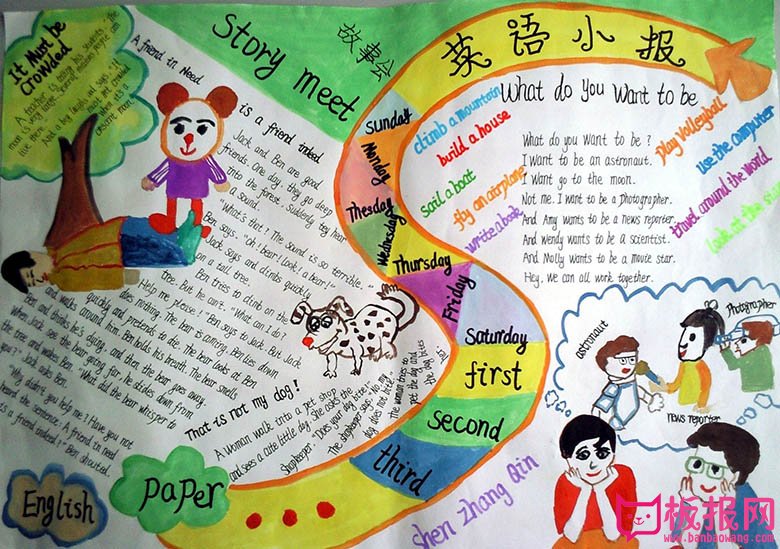 It Must be
Crowded
A friend in need
is a friend indeed
Story meet
故事会
英语小报
Jack and Ben are good
friends. One day, they go deep
into the forest. Suddenly they hear
a sound.
"What's that? The sound is so terrible."
Ben says. "Oh! Bear! Look! a bear!"
Jack says and climbs quickly
on a tall tree.
Ben tries to climb on the
tree. But he can't. "What can I do?
Help me please!" Ben says to Jack. But Jack
does nothing. The bear is coming. Ben lies down
quickly and pretends to die. The bear looks at Ben
and walks around him. Ben holds his breath. The bear smells
Ben and thinks he's dying, and then the bear goes away.
When Jack sees the bear going far, he slides down from
the tree and wakes Ben. "What did the bear whisper to
you?" Jack asks Ben.
"Why didn't you help me? Have you not
heard the sentence: A friend in need
is a friend indeed?" Ben shouted.
That is not my dog!
A woman walk into a pet shop
and sees a cute little dog. She asks the
shopkeeper: "Does your dog bite?"
The shopkeeper says: "No, my
dog does not bite."
The woman tries to
pet the dog and
the dog bites
Sunday
Monday
Thesday
Wednesday
Thursday
Friday
Saturday
first
second
third
climb a mountain
build a house
sail a boat
fly an airplane
write a book
What do you Want to be
What do you Want to be?
I want to be an astronaut.
I want go to the moon.
Not me. I want to be a photographer.
And Amy wants to be a news reporter.
And wendy wants to be a scientist.
And Molly wants to be a movie star.
Hey, we can all work together.
play volleyball
use the computer
travel around the world
look at the
astronaut
photographer
news reporter
chen zhang Qin
English
Paper
板报网
www.banbaowang.com